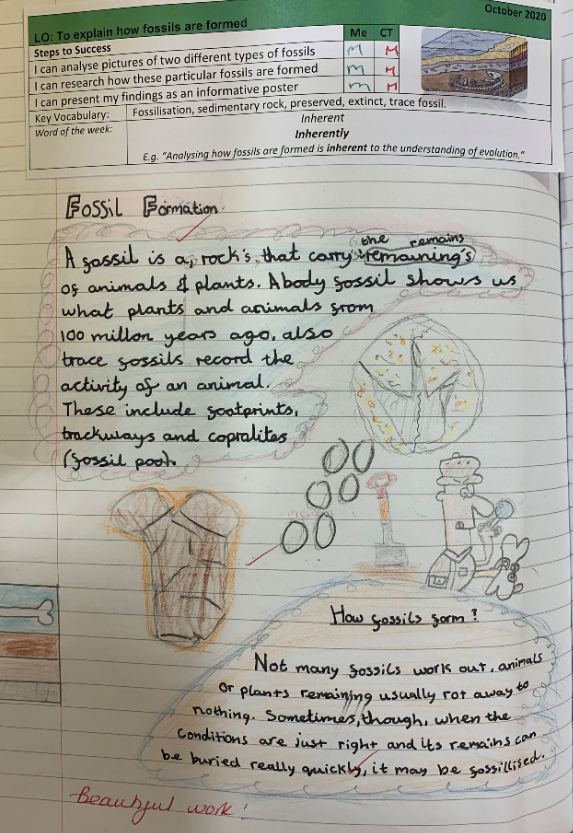 October 2020
LO: To explain how fossils are formed
Me CT
Steps to Success
I can analyse pictures of two different types of fossils M M
I can research how these particular fossils are formed M M
I can present my findings as an informative poster M M
Key Vocabulary: Fossilisation, sedimentary rock, preserved, extinct, trace fossil.
Word of the week: Inherent
Inherently
E.g. "Analysing how fossils are formed is inherent to the understanding of evolution."
Fossil Formation
the remains
A fossil is a, rock's, that carry remaining's
of animals & plants. A body fossil shows us
what plants and animals from
100 millon years ago, also
trace fossils record the
activity of an animal.
These include footprints,
trackways and coprolites
(fossil poo).
How fossils form?
Not many fossils work out, animals
or plants remaining usually rot away to
nothing. Sometimes, though, when the
conditions are just right and its remains can
be buried really quickly, it may be fossillised.
Beautiful work!